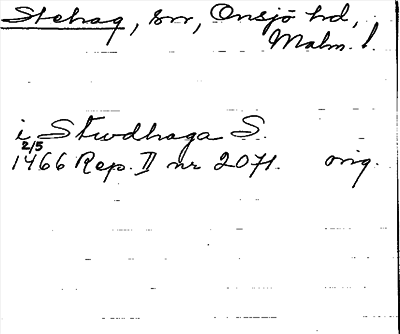 Stehag, sn, Onsjö hd,
Malm. l.
i Stwdhaga S.
2/5
1466 Rep. II nr 2071. orig.